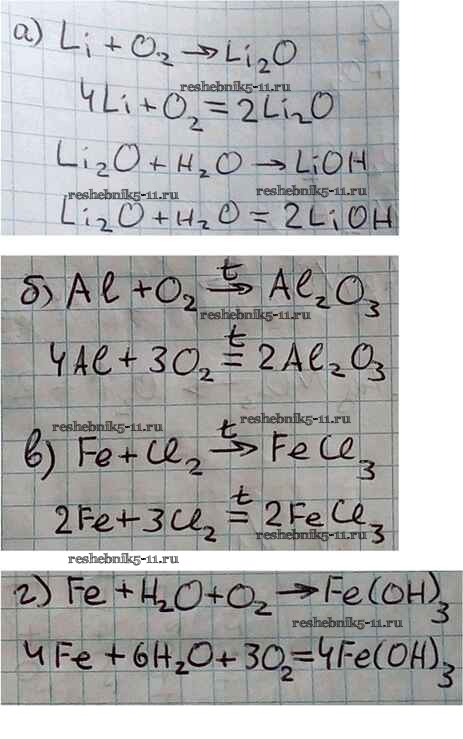 а) Li + O₂ → Li₂O
reshebnik5-11.ru
4Li + O₂ = 2Li₂O
Li₂O + H₂O → LiOH
reshebnik5-11.ru reshebnik5-11.ru
Li₂O + H₂O = 2LiOH
б) Al + O₂ →ᵗ Al₂O₃
reshebnik5-11.ru
4Al + 3O₂ =ᵗ 2Al₂O₃
reshebnik5-11.ru
в) Fe + Cl₂ →ᵗ FeCl₃
2Fe + 3Cl₂ =ᵗ 2FeCl₃
reshebnik5-11.ru
г) Fe + H₂O + O₂ → Fe(OH)₃
reshebnik5-11.ru
4Fe + 6H₂O + 3O₂ = 4Fe(OH)₃